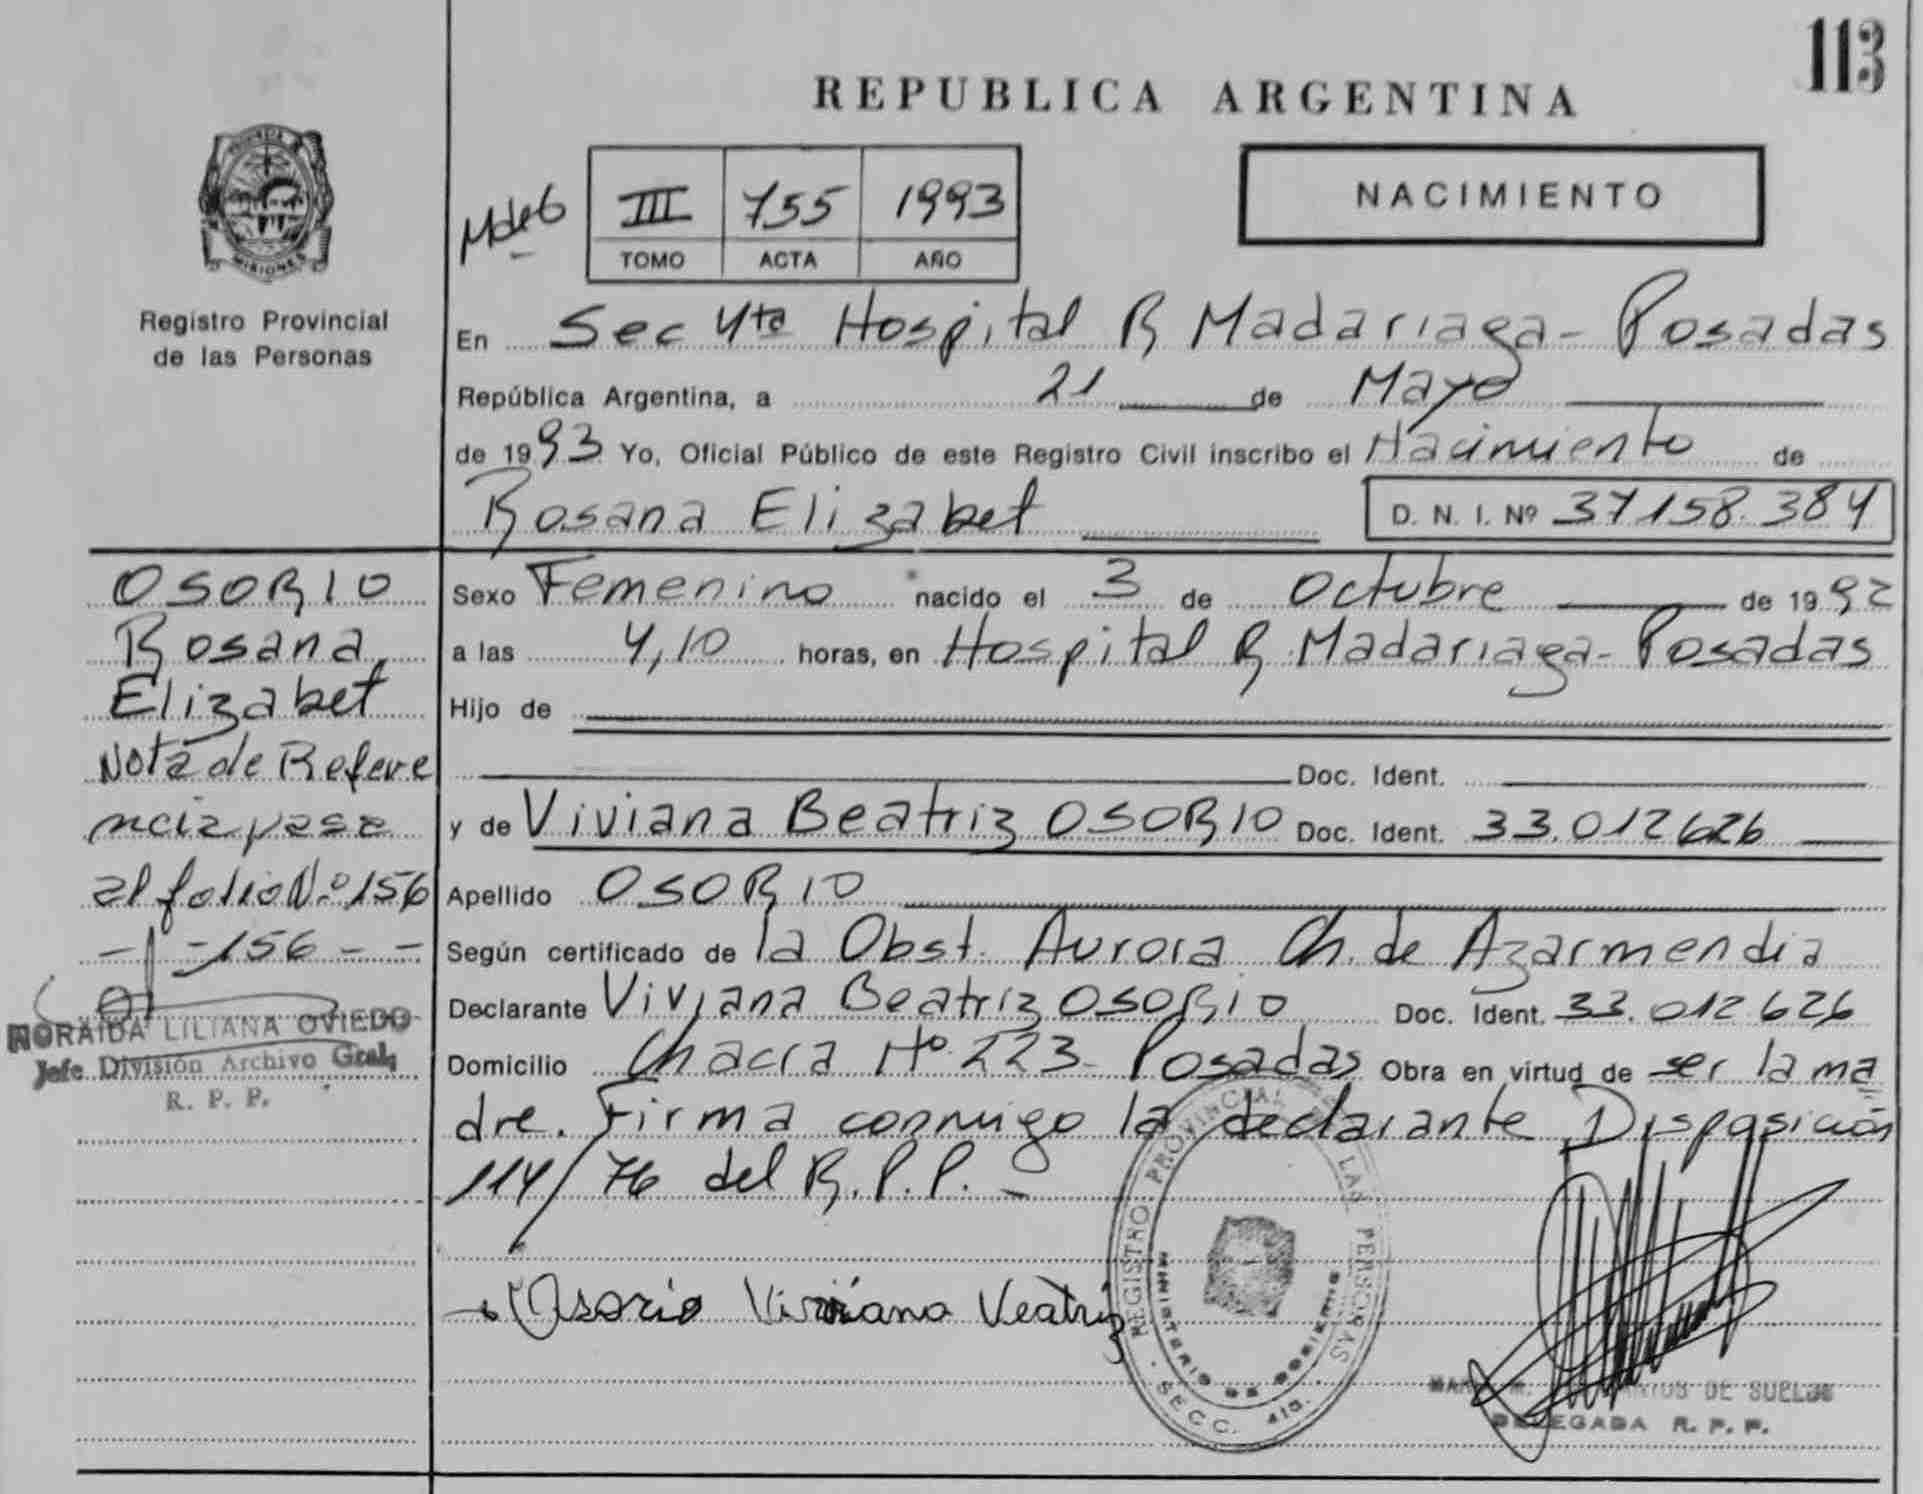 113
REPUBLICA ARGENTINA
PROVINCIA DE
MISIONES
Registro Provincial
de las Personas
MdeG
III 755 1993
TOMO ACTA AÑO
NACIMIENTO
En Sec 4ta Hospital R Madariaga - Posadas
República Argentina, a 21 de Mayo
de 1993 Yo, Oficial Público de este Registro Civil inscribo el Nacimiento de
Rosana Elizabet D. N. I. Nº 37158.384
OSORIO
Rosana
Elizabet
Nota de Refere
ncia pasa
al folio Nº 156
- 156 - -
NORAIDA LILIANA OVIEDO
Jefe División Archivo Gral.
R. P. P.
Sexo Femenino nacido el 3 de Octubre de 1992
a las 4,10 horas, en Hospital R Madariaga - Posadas
Hijo de
Doc. Ident.
y de Viviana Beatriz OSORIO Doc. Ident. 33.012626
Apellido OSORIO
Según certificado de la Obst. Aurora Ch. de Azarmendia
Declarante Viviana Beatriz OSORIO Doc. Ident. 33.012626
Domicilio Chacra Nº 223 - Posadas Obra en virtud de ser la ma
dre. Firma conmigo la declarante Disposición
114/76 del R.P.P. -
Osorio Viviana Veatriz
REGISTRO PROVINCIAL DE LAS PERSONAS
MINISTERIO DE GOBIERNO
SECC. 4ta.
DE SUELDO
DELEGADA R. P. P.